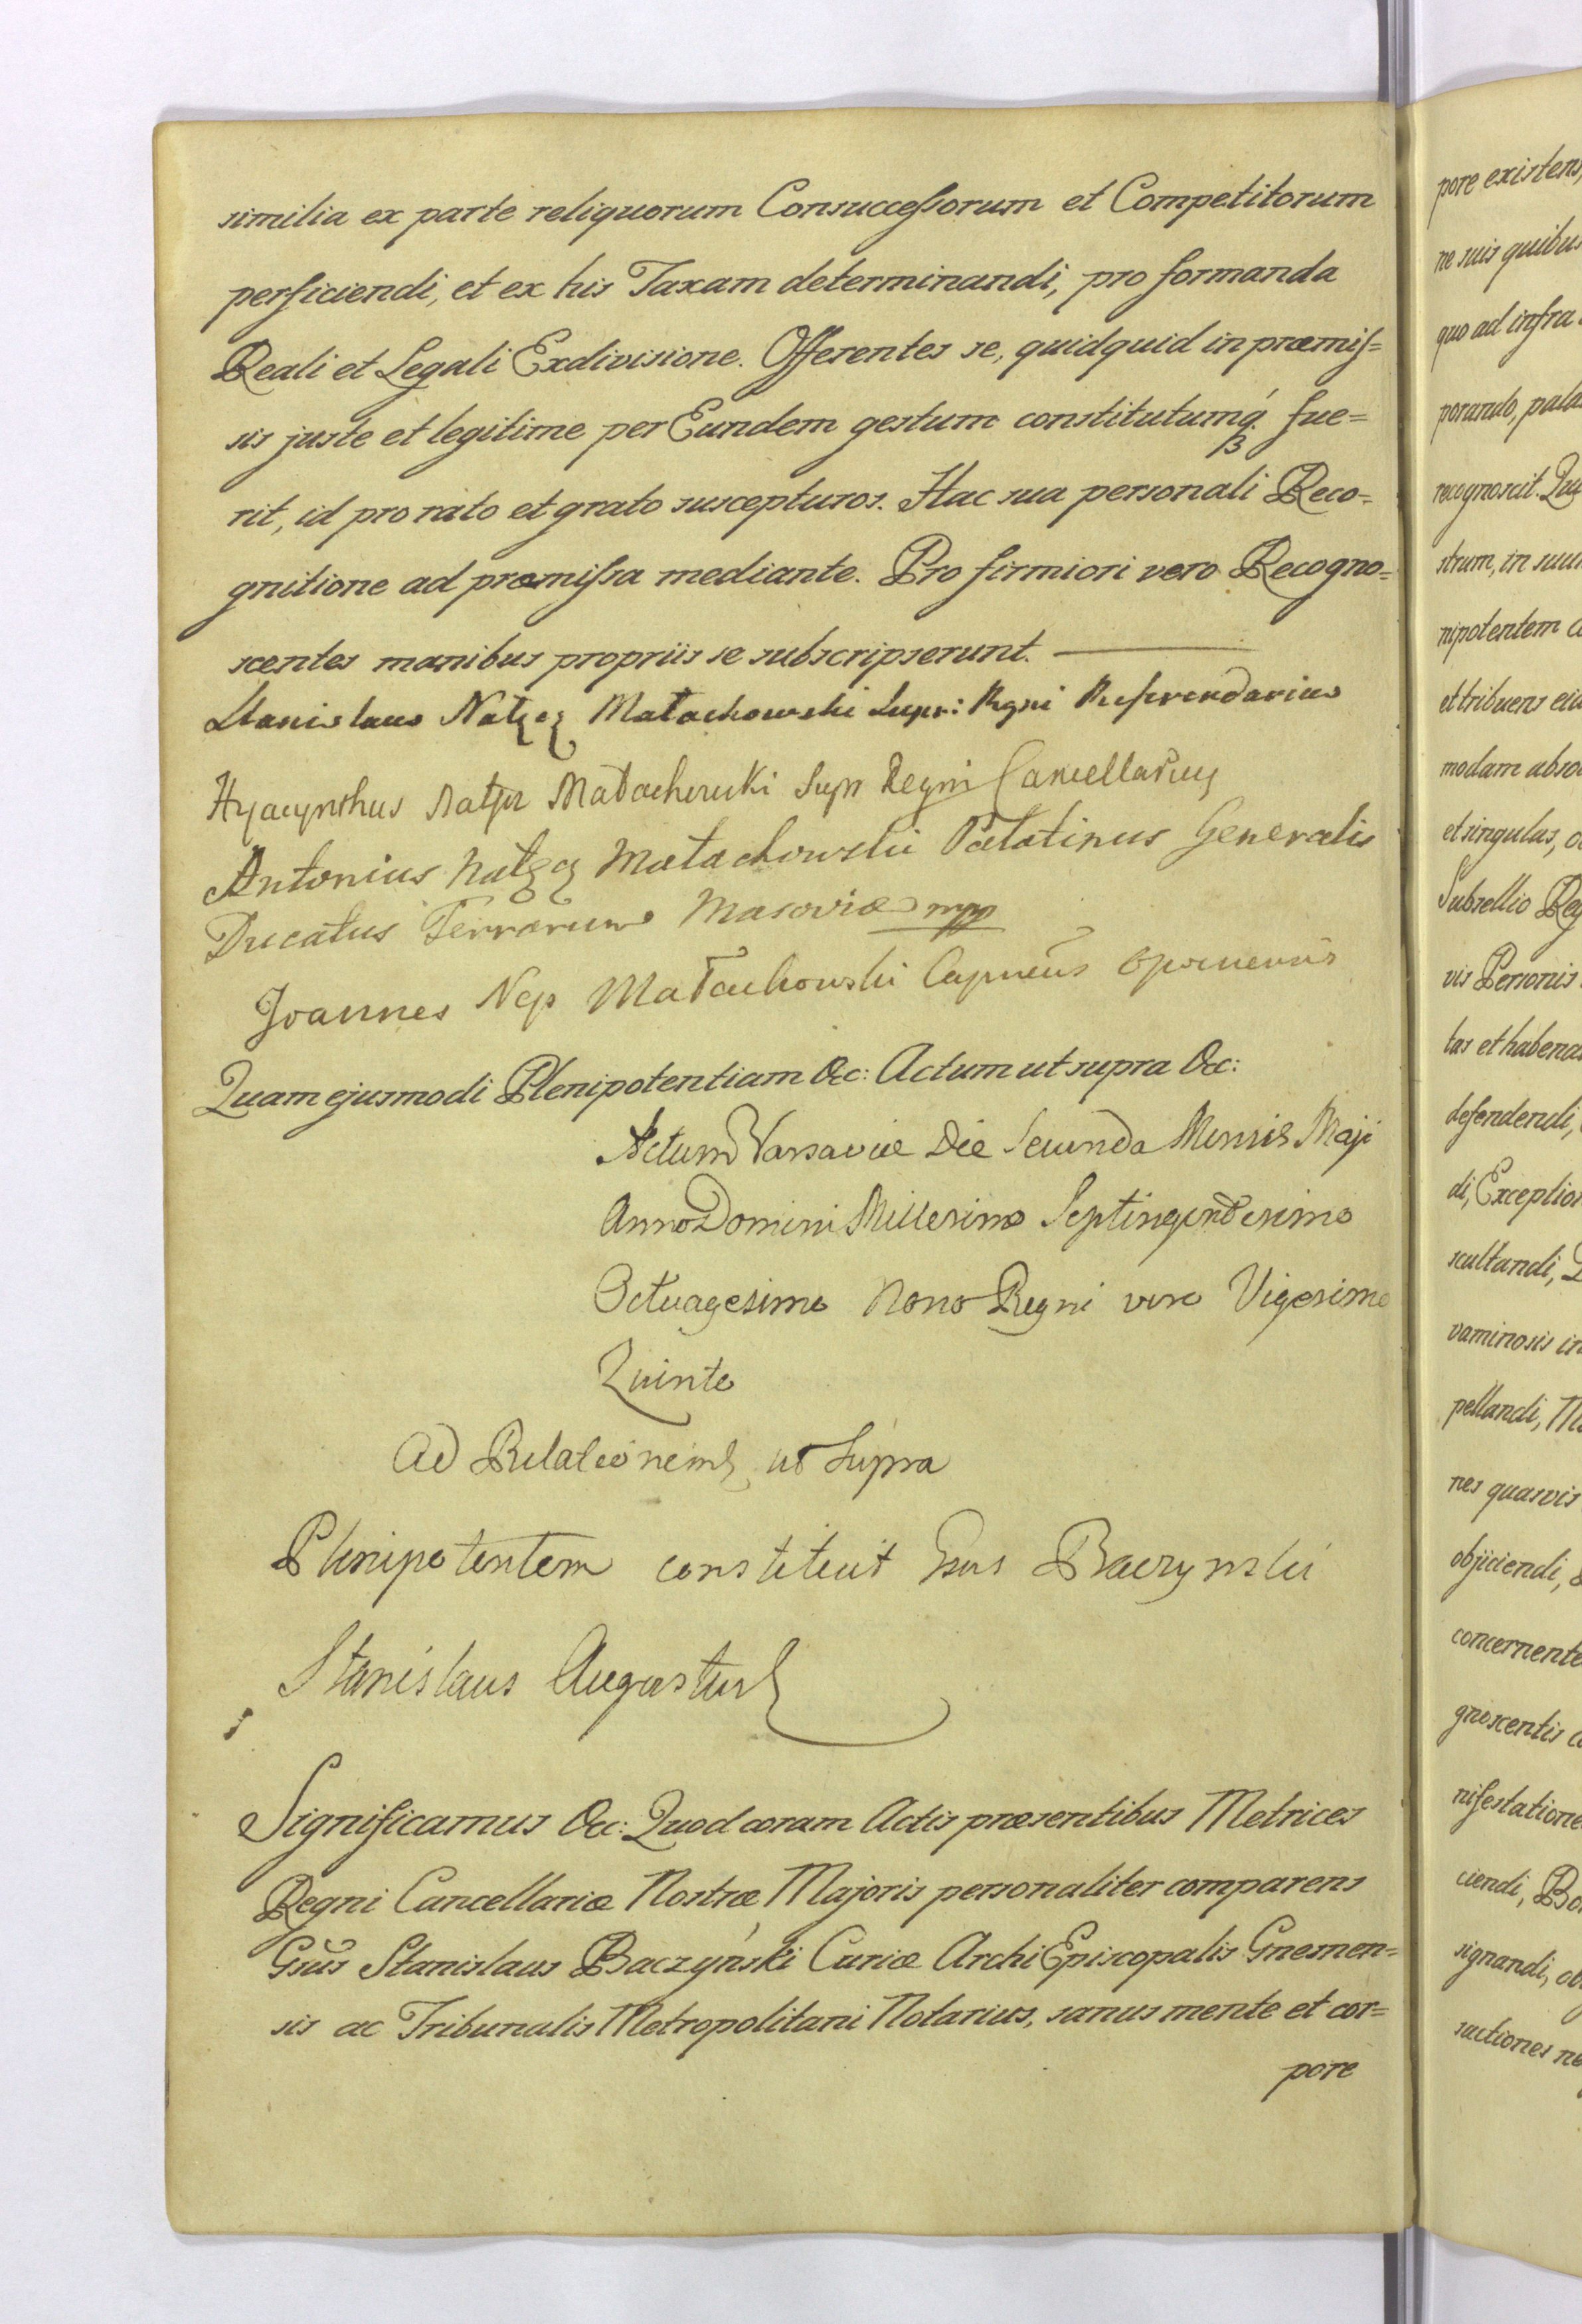 similia ex parte reliquorum Consuccessorum et Competitorum
perficiendi, et ex his Taxam determinandi, pro formanda
Reali et Legali Exdivisione. Offerentes se, quidquid in præmis=
sis juste et legitime per Eundem gestum constitutumq́ fue=
rit, id pro rato et grato suscepturos. Hac sua personali Reco=
gnitione ad præmissa mediante. Pro firmiori vero Recogno=
scentes manibus propriis se subscripserunt.
Stanislaus Nałęcz Małachowski Supr: Regni Referendarius
Hyacynthus Nałęcz Małachowski Supr Regni Cancellarius
Antonius Nałęcz Małachowski Palatinus Generalis
Ducatus Terrarum Masoviæ mpp
Joannes Nep Małachowski Capneus Opocnensis
Quam ejusmodi Plenipotentiam &c: Actum ut supra &c:
Actum Varsaviæ Die Secunda Mensis Maji
Anno Domini Millesimo Septingentesimo
Octuagesimo Nono Regni vero Vigesimo
Quinto
Ad Relationem ut Supra
Plenipotentem constituit Gsus Baczynski
Stanislaus Augustus
Significamus &c: Quod coram Actis præsentibus Metrices
Regni Cancellariæ Nostræ Majoris personaliter comparens
Gsus Stanislaus Baczyński Curiæ ArchiEpiscopalis Gnesnen=
sis ac Tribunalis Metropolitani Notarius, sanus mente et cor=
pore
pore existens,
ne suis quibus
quo ad infra
porando, pala
recognoscit. Qui
strum, in suum
nipotentem
et tribuens
modam abso
et singulas,
Subsellio Reg
vis Personis
tas et habena
defendendi,
di, Exception
scultandi,
vaminosis in
pellandi,
nes quasvis
objiciendi,
concernente
gnoscentis
nifestatione
ciendi, Bo
signandi, ob
sactiones ne